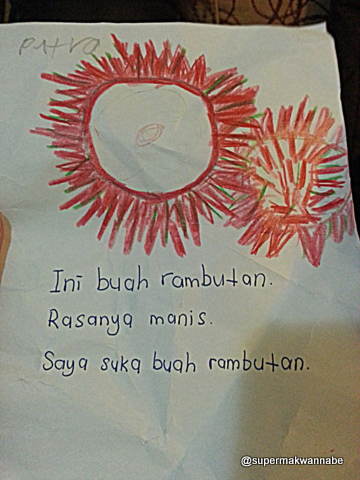 putra
Ini buah rambutan.
Rasanya manis.
Saya suka buah rambutan.
@supermakwannabe